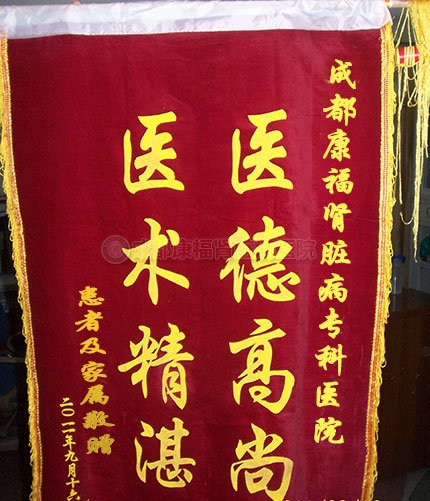 成都康福肾脏病专科医院
医德高尚
医术精湛
患者及家属敬赠
二〇一一年九月十六